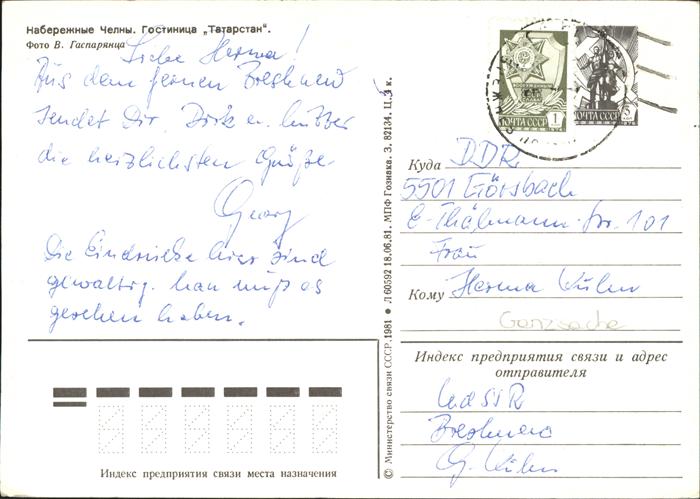 Набережные Челны. Гостиница „Татарстан".
Фото В. Гаспарянца
Liebe Herma!
Aus dem fernen Breshnew
sendet Dir, Dirk u. Mutter
die herzlichsten Grüße
Georg
Die Eindrücke hier sind
gewaltig. Man muß es
gesehen haben.
ПОЧТА СССР 1
ПОЧТА СССР
Куда DDR
5501 Görsbach
E.-Thälmann-Str. 101
Frau
Кому Herma Kühn
Ganzsache
Индекс предприятия связи и адрес
отправителя
UdSSR
Breshnew
G. Kühn
Индекс предприятия связи места назначения
© Министерство связи СССР. 1981 • Л 60592 18.06.81. МПФ Гознака. З. 82134. Ц. 3 к.